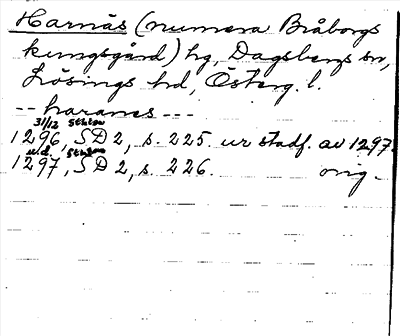 Harnäs (numera Bråborgs
kungsgård) hg, Dagsbergs sn,
Lösings hd, Österg. l.
-- haranes ---
31/12 Sthlm
1296, SD 2, s. 225. ur stadf. av 1297.
u.d. Sthlm
1297, SD 2, s. 226. orig.